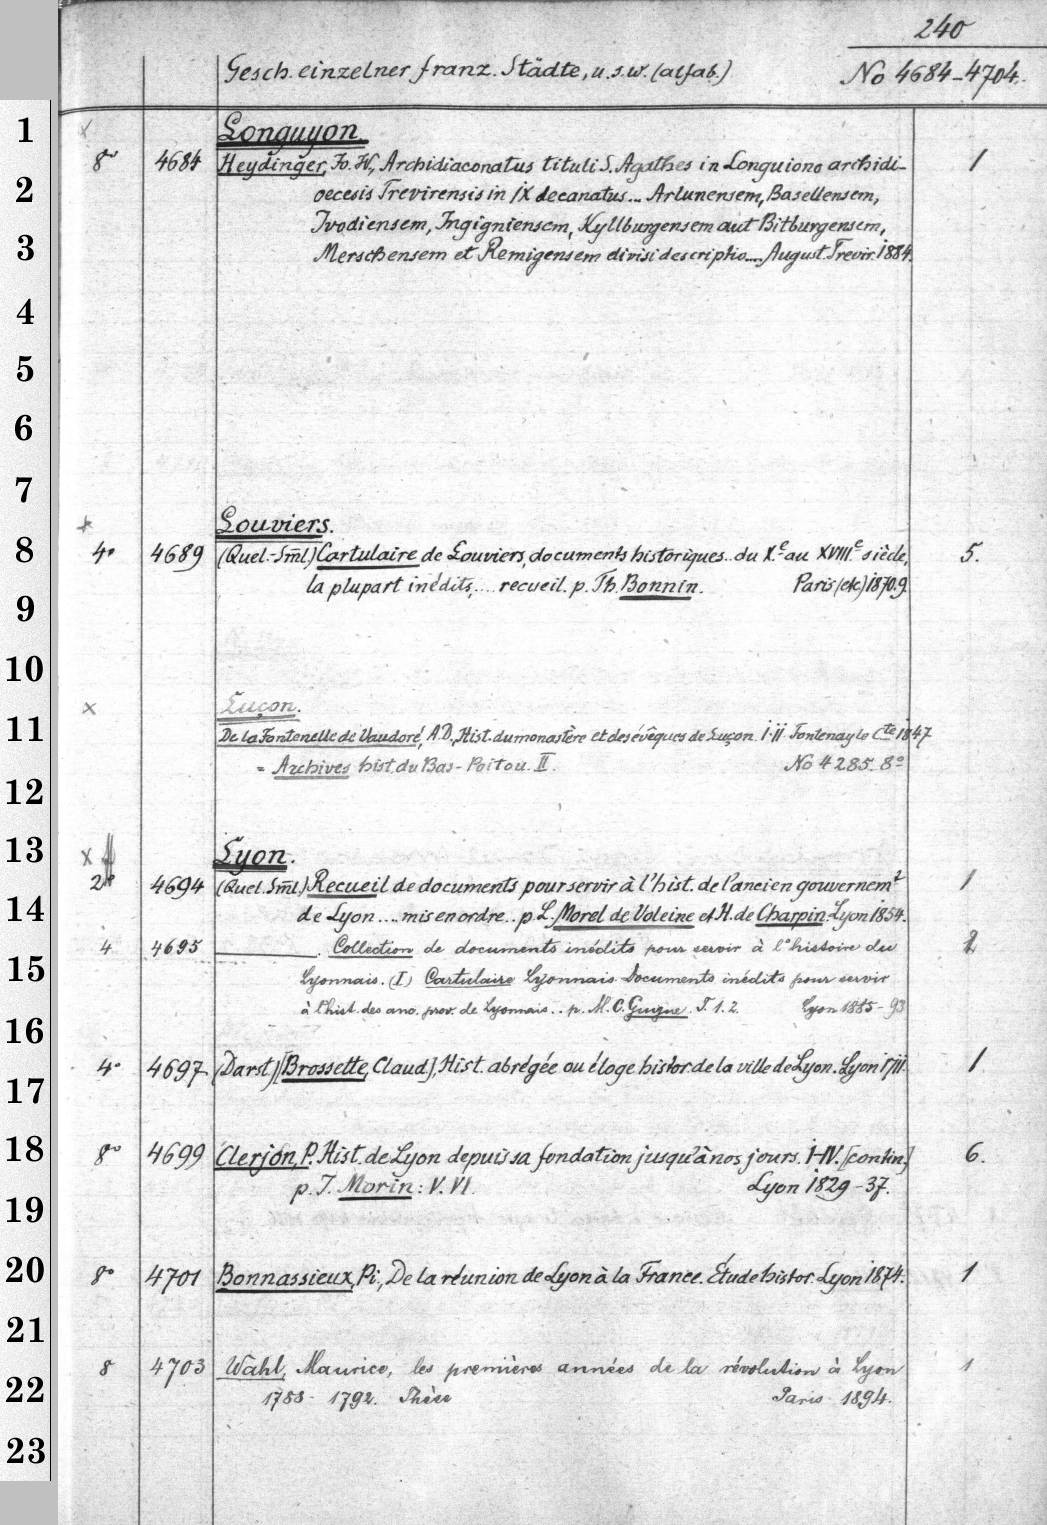 240
Gesch. einzelner franz. Städte, u.s.w. (alfab.) No 4684-4704.
1
x Longuyon
8° 4684 Heydinger, Jo. W., Archidiaconatus tituli S. Agathes in Longuiono archidi- 1
2 oecesis Trevirensis in IX decanatus... Arlunensem, Basellensem,
Ivodiensem, Ingigniensem, Kyllburgensem aut Bitburgensem,
3 Merschensem et Remigensem divisi descriptio.... August. Trevir. 1884.
4
5
6
7
x Louviers.
8 4° 4689 (Quel.-Sml.) Cartulaire de Louviers, documents historiques.. du X.e au XVIII.e siècle, 5.
9 la plupart inédits,.... recueil. p. Th. Bonnin. Paris (etc) 1870.9.
10
x Luçon.
11 De la Fontenelle de Vaudoré, A.D., Hist. du monastère et des évêques de Luçon. I-II. Fontenay le Cte 1847
= Archives hist. du Bas-Poitou. II. No 4285. 8°
12
13 x Lyon.
2° 4694 (Quel. Sml.) Recueil de documents pour servir à l'hist. de l'ancien gouvernemt 1
14 de Lyon.... mis en ordre.. p. L. Morel de Voleine et H. de Charpin. Lyon 1854.
4 4695 ______. Collection de documents inédits pour servir à l'histoire du 2
15 Lyonnais. (I) Cartulaire Lyonnais. Documents inédits pour servir
à l'hist. des anc. prov. de Lyonnais.. p. M. C. Guigue. T. 1. 2. Lyon 1885-93
16
4° 4697 (Darst.) [Brossette, Claud], Hist. abrégée ou éloge histor. de la ville de Lyon. Lyon 1711. 1
17
18 8° 4699 Clerjon, P. Hist. de Lyon depuis sa fondation jusqu'à nos jours. I-IV. [contin.] 6.
p. J. Morin: V. VI. Lyon 1829-37.
19
20 8° 4701 Bonnassieux, Pi., De la réunion de Lyon à la France. Étude histor. Lyon 1874. 1
21
8 4703 Wahl, Maurice, les premières années de la révolution à Lyon 1
22 1788-1792. Thèse Paris 1894.
23